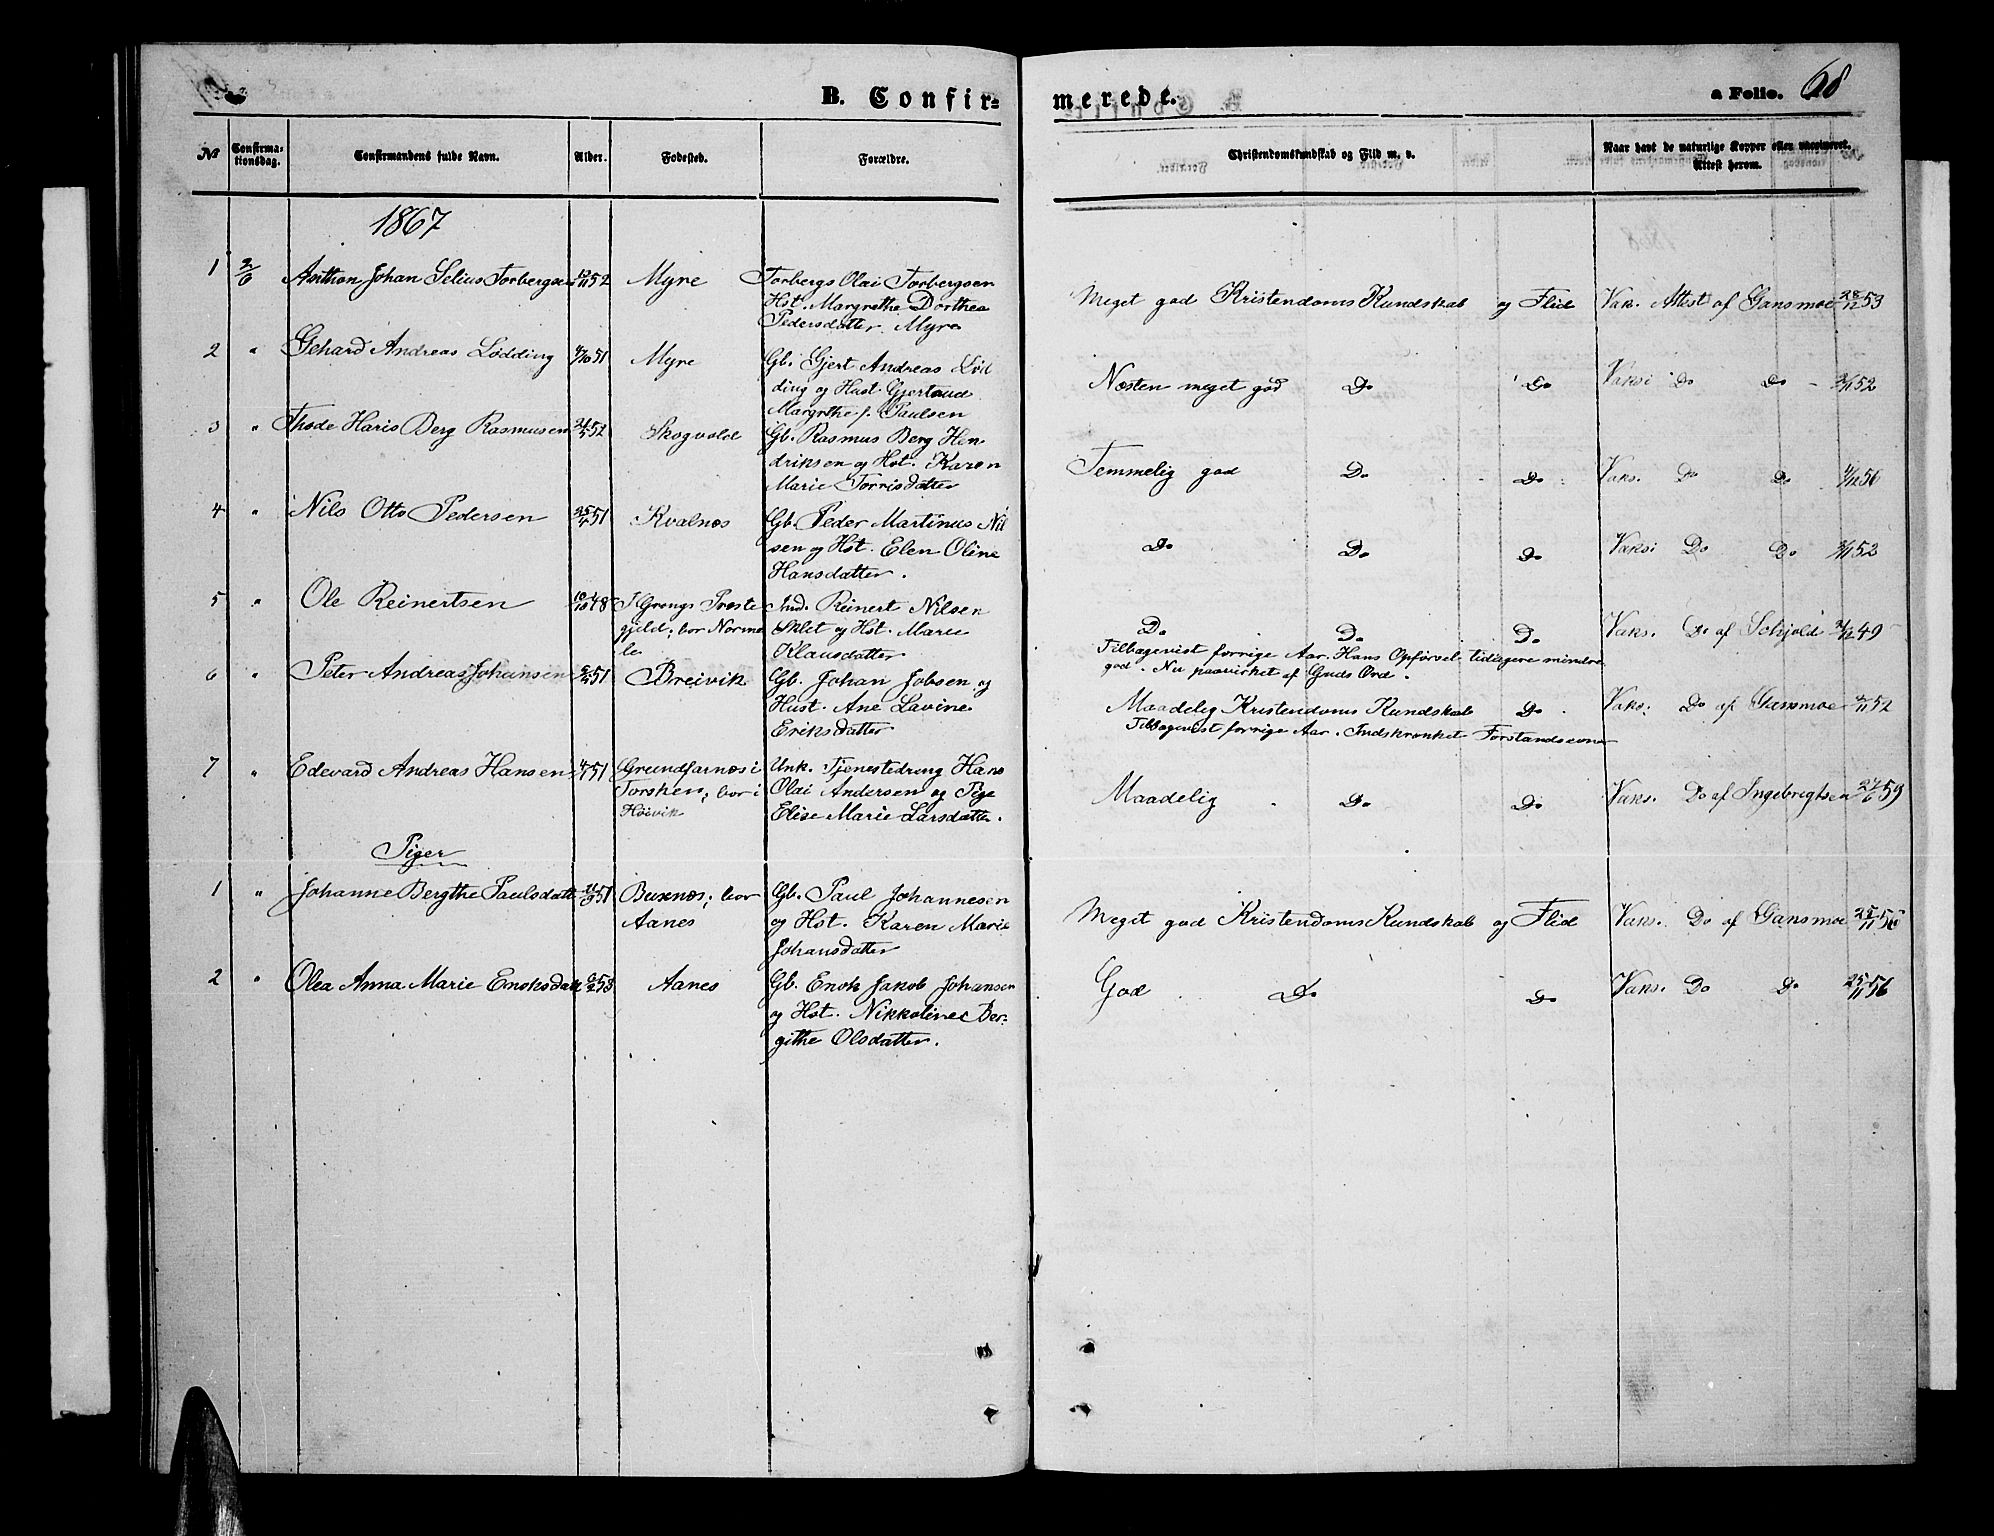 B. Confir= merede. a Folio. 68
No Confirma-tionsdag. Confirmandens fulde Navn. Alder. Fødested. Forældre. Christendomskundskab og Flid m. v. Naar havt de naturlige Kopper eller vaccineret. Attest herom.
1867
1 2/6 Anthon Johan Selius Torbergsen 52 Myre Torbergs Olai Torbergsen
Hst. Margrethe Dorthea
Pedersdatter Myre
Meget god Kristendoms Kundskab og Flid Vak. Attest af Gansmoe 28/12 53
2 " Gehard Andreas Lødding 51 Myre Gb. Gjert Andreas Lød
ding og Hust. Gjertrud
Margrethe f. Paulsen
Næsten meget god Do Do Vaksi Do Do 52
3 " Thode Haris Berg Rasmusen 52 Skogvold Gb. Rasmus Berg Hen
driksen og Hst. Karen
Marie Torrisdatter
Temmelig god Do Do Vaks. Do Do 56
4 " Nils Otto Pedersen 51 Kvalnes Gb. Peder Martinus Nil
sen og Hst. Elen Oline
Hansdatter.
Do Do Do Vaksi Do Do 52
5 " Ole Reinertsen 10/10 48 I Grongs Præste
gjeld; bor Norme
le
Ind. Reinert Nilsen
Sklet og Hst. Marie
Klausdatter
Do Do Do Vaks. Do af Schjold 49
Tilbagevist forrige Aar. Hans Opførsel tidligere mindre
god. Nu paavirket af Guds Ord.
6 " Peter Andreas Johansen 51 Breivik Gb. Johan Jobsen og
Hust. Ane Lavine
Eriksdatter
Maadelig Kristendoms Kundskab Do Vaks. Do af Gansmoe 52
Tilbagevist forrige Aar. Indskrænket Forstandsevner
7 " Edevard Andreas Hansen 51 Grundfarnes i
Torsken; bor i
Høivik
Unk. Tjenestedreng Hans
Olai Andersen og Pige
Elise Marie Larsdatter.
Maadelig Do Do Vaks. Do af Ingebrigtsen 27/6 59
Piger
1 " Johanne Bergthe Paulsdatt 51 Buxnes; bor
Aanes
Gb. Paul Johannesen
og Hst. Karen Marie
Johansdatter
Meget god Kristendoms Kundskab og Flid Vaks. Do af Gansmoe 25/11 56
2 " Olea Anna Marie Enoksdatt 53 Aanes Gb. Enok Jakob Johansen
og Hst. Nikkoline Ber-
githe Olsdatter.
God Do Do Vaks. Do Do 25/11 56